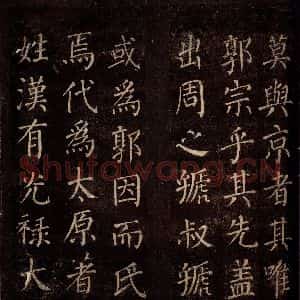 莫與京者其唯
郭宗乎其先蓋
出周之虢叔虢
或為郭因而氏
焉代為太原著
姓漢有光祿大
Shufawang.CN